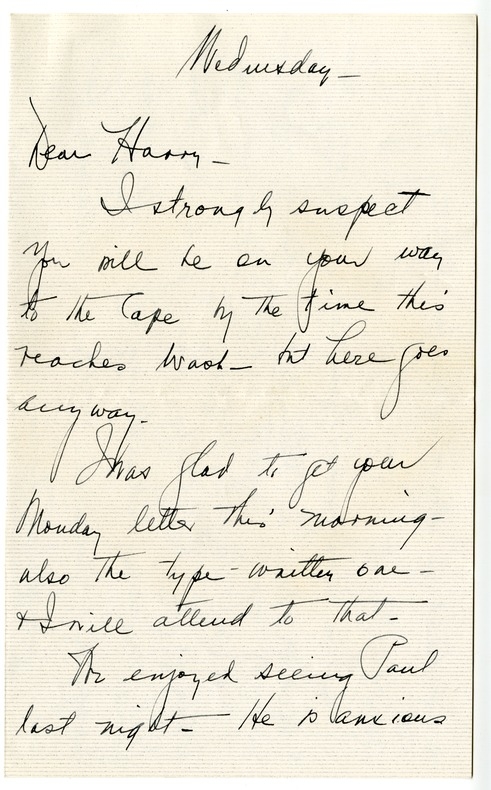 Wednesday—
Dear Harry—
I strongly suspect
you will be on your way
to the Cape by the time this
reaches Wash— but here goes
anyway.
I was glad to get your
Monday letter this morning—
also the type-written one—
& I will attend to that—
We enjoyed seeing Paul
last night— He is anxious